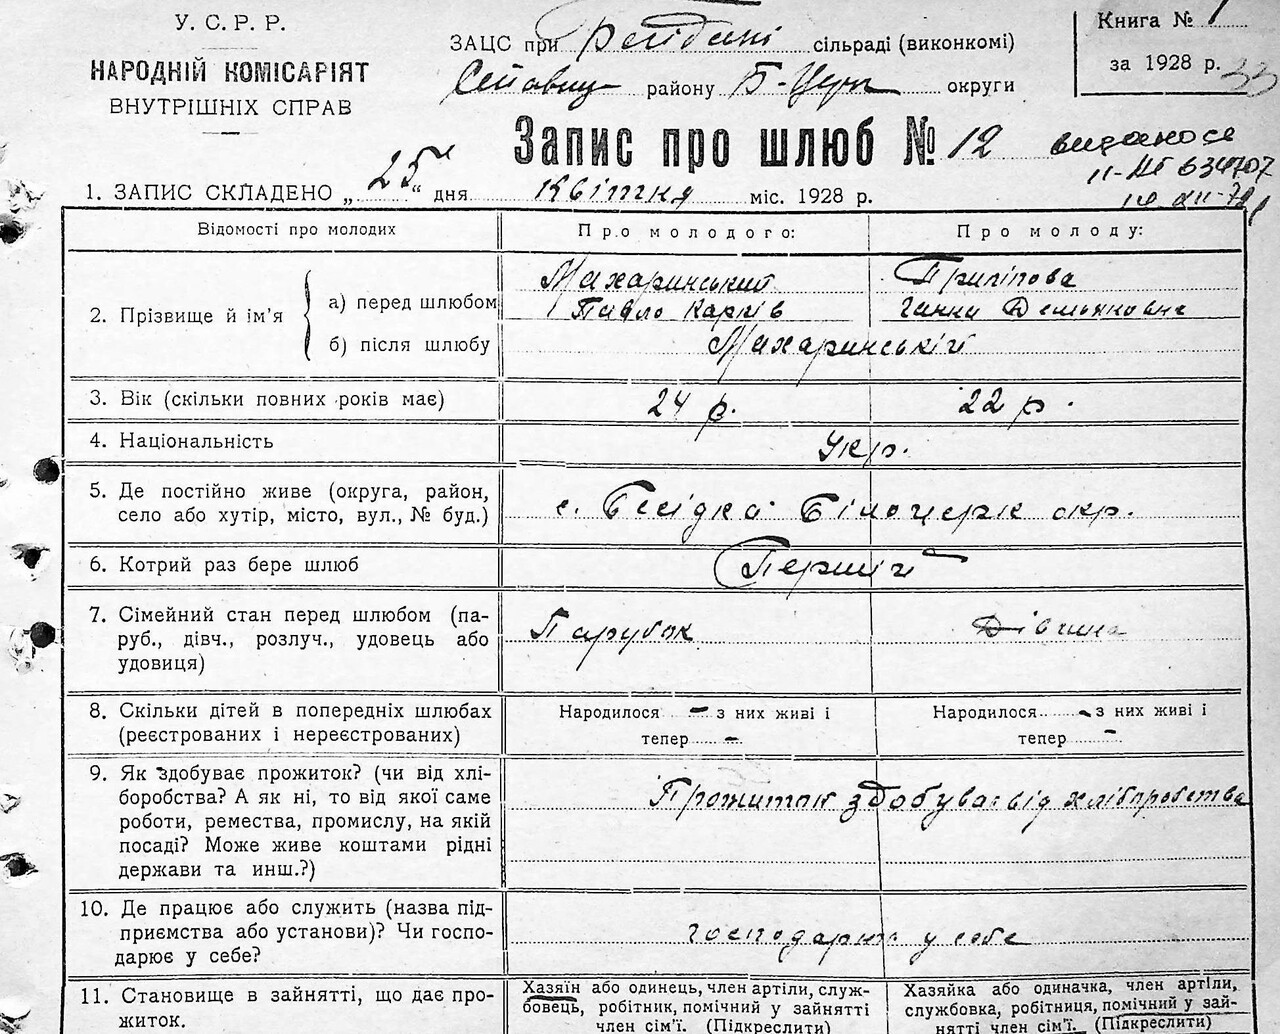 У. С. Р. Р.
НАРОДНІЙ КОМІСАРІЯТ
ВНУТРІШНІХ СПРАВ
ЗАЦС при сільраді (виконкомі)
району Б-Церк округи
Книга № 1
за 1928 р. 33
Запис про шлюб № 12
видано св
II-
1. ЗАПИС СКЛАДЕНО „25“ дня квітня міс. 1928 р.
Відомості про молодих Про молодого: Про молоду:
2. Прізвище й ім'я
а) перед шлюбом Махаринський Павло Карпів
Ганна Демьяновна
б) після шлюбу Махаринській
3. Вік (скільки повних років має) 24 р. 22 р.
4. Національність Укр.
5. Де постійно живе (округа, район,
село або хутір, місто, вул., № буд.) с. Бесідка Білоцерк окр.
6. Котрий раз бере шлюб Перший
7. Сімейний стан перед шлюбом (па-
руб., дівч., розлуч., удовець або
удовиця) Парубок Дівчина
8. Скільки дітей в попередніх шлюбах
(реєстрованих і нереєстрованих)
Народилося - з них живі і
тепер -
Народилося - з них живі і
тепер -
9. Як здобуває прожиток? (чи від хлі-
боробства? А як ні, то від якої саме
роботи, ремества, промислу, на якій
посаді? Може живе коштами рідні
держави та инш.?)
Прожиток здобуває від хліборобства
10. Де працює або служить (назва під-
приємства або установи)? Чи госпо-
дарює у себе?
господарює у себе
11. Становище в зайнятті, що дає про-
житок.
Хазяїн або одинець, член артіли, служ-
бовець, робітник, помічний у зайнятті
член сім'ї. (Підкреслити)
Хазяйка або одиначка, член артіли,
службовка, робітниця, помічний у зай-
нятті член сім'ї. (Підкреслити)